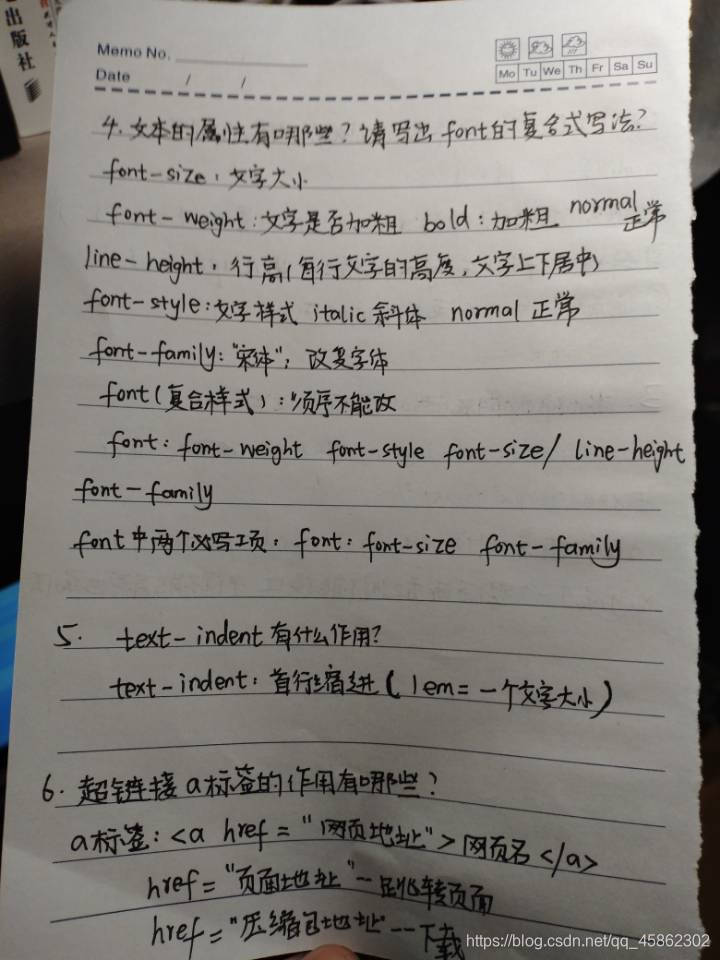 出版社
Memo No.
Date / /
Mo Tu We Th Fr Sa Su
4. 文本的属性有哪些？请写出font的复合式写法？
font-size：文字大小
font-weight：文字是否加粗 bold：加粗 normal 正常
line-height：行高（每行文字的高度，文字上下居中）
font-style：文字样式 italic 斜体 normal 正常
font-family："宋体"；改变字体
font（复合样式）：顺序不能改
font：font-weight font-style font-size/ line-height
font-family
font中两个必写项：font：font-size font-family
5. text-indent有什么作用？
text-indent：首行缩进（1em=一个文字大小）
6. 超链接a标签的作用有哪些？
a标签：<a href="网页地址">网页名</a>
href="页面地址"--跳转页面
href="压缩包地址"--下载
https://blog.csdn.net/qq_45862302